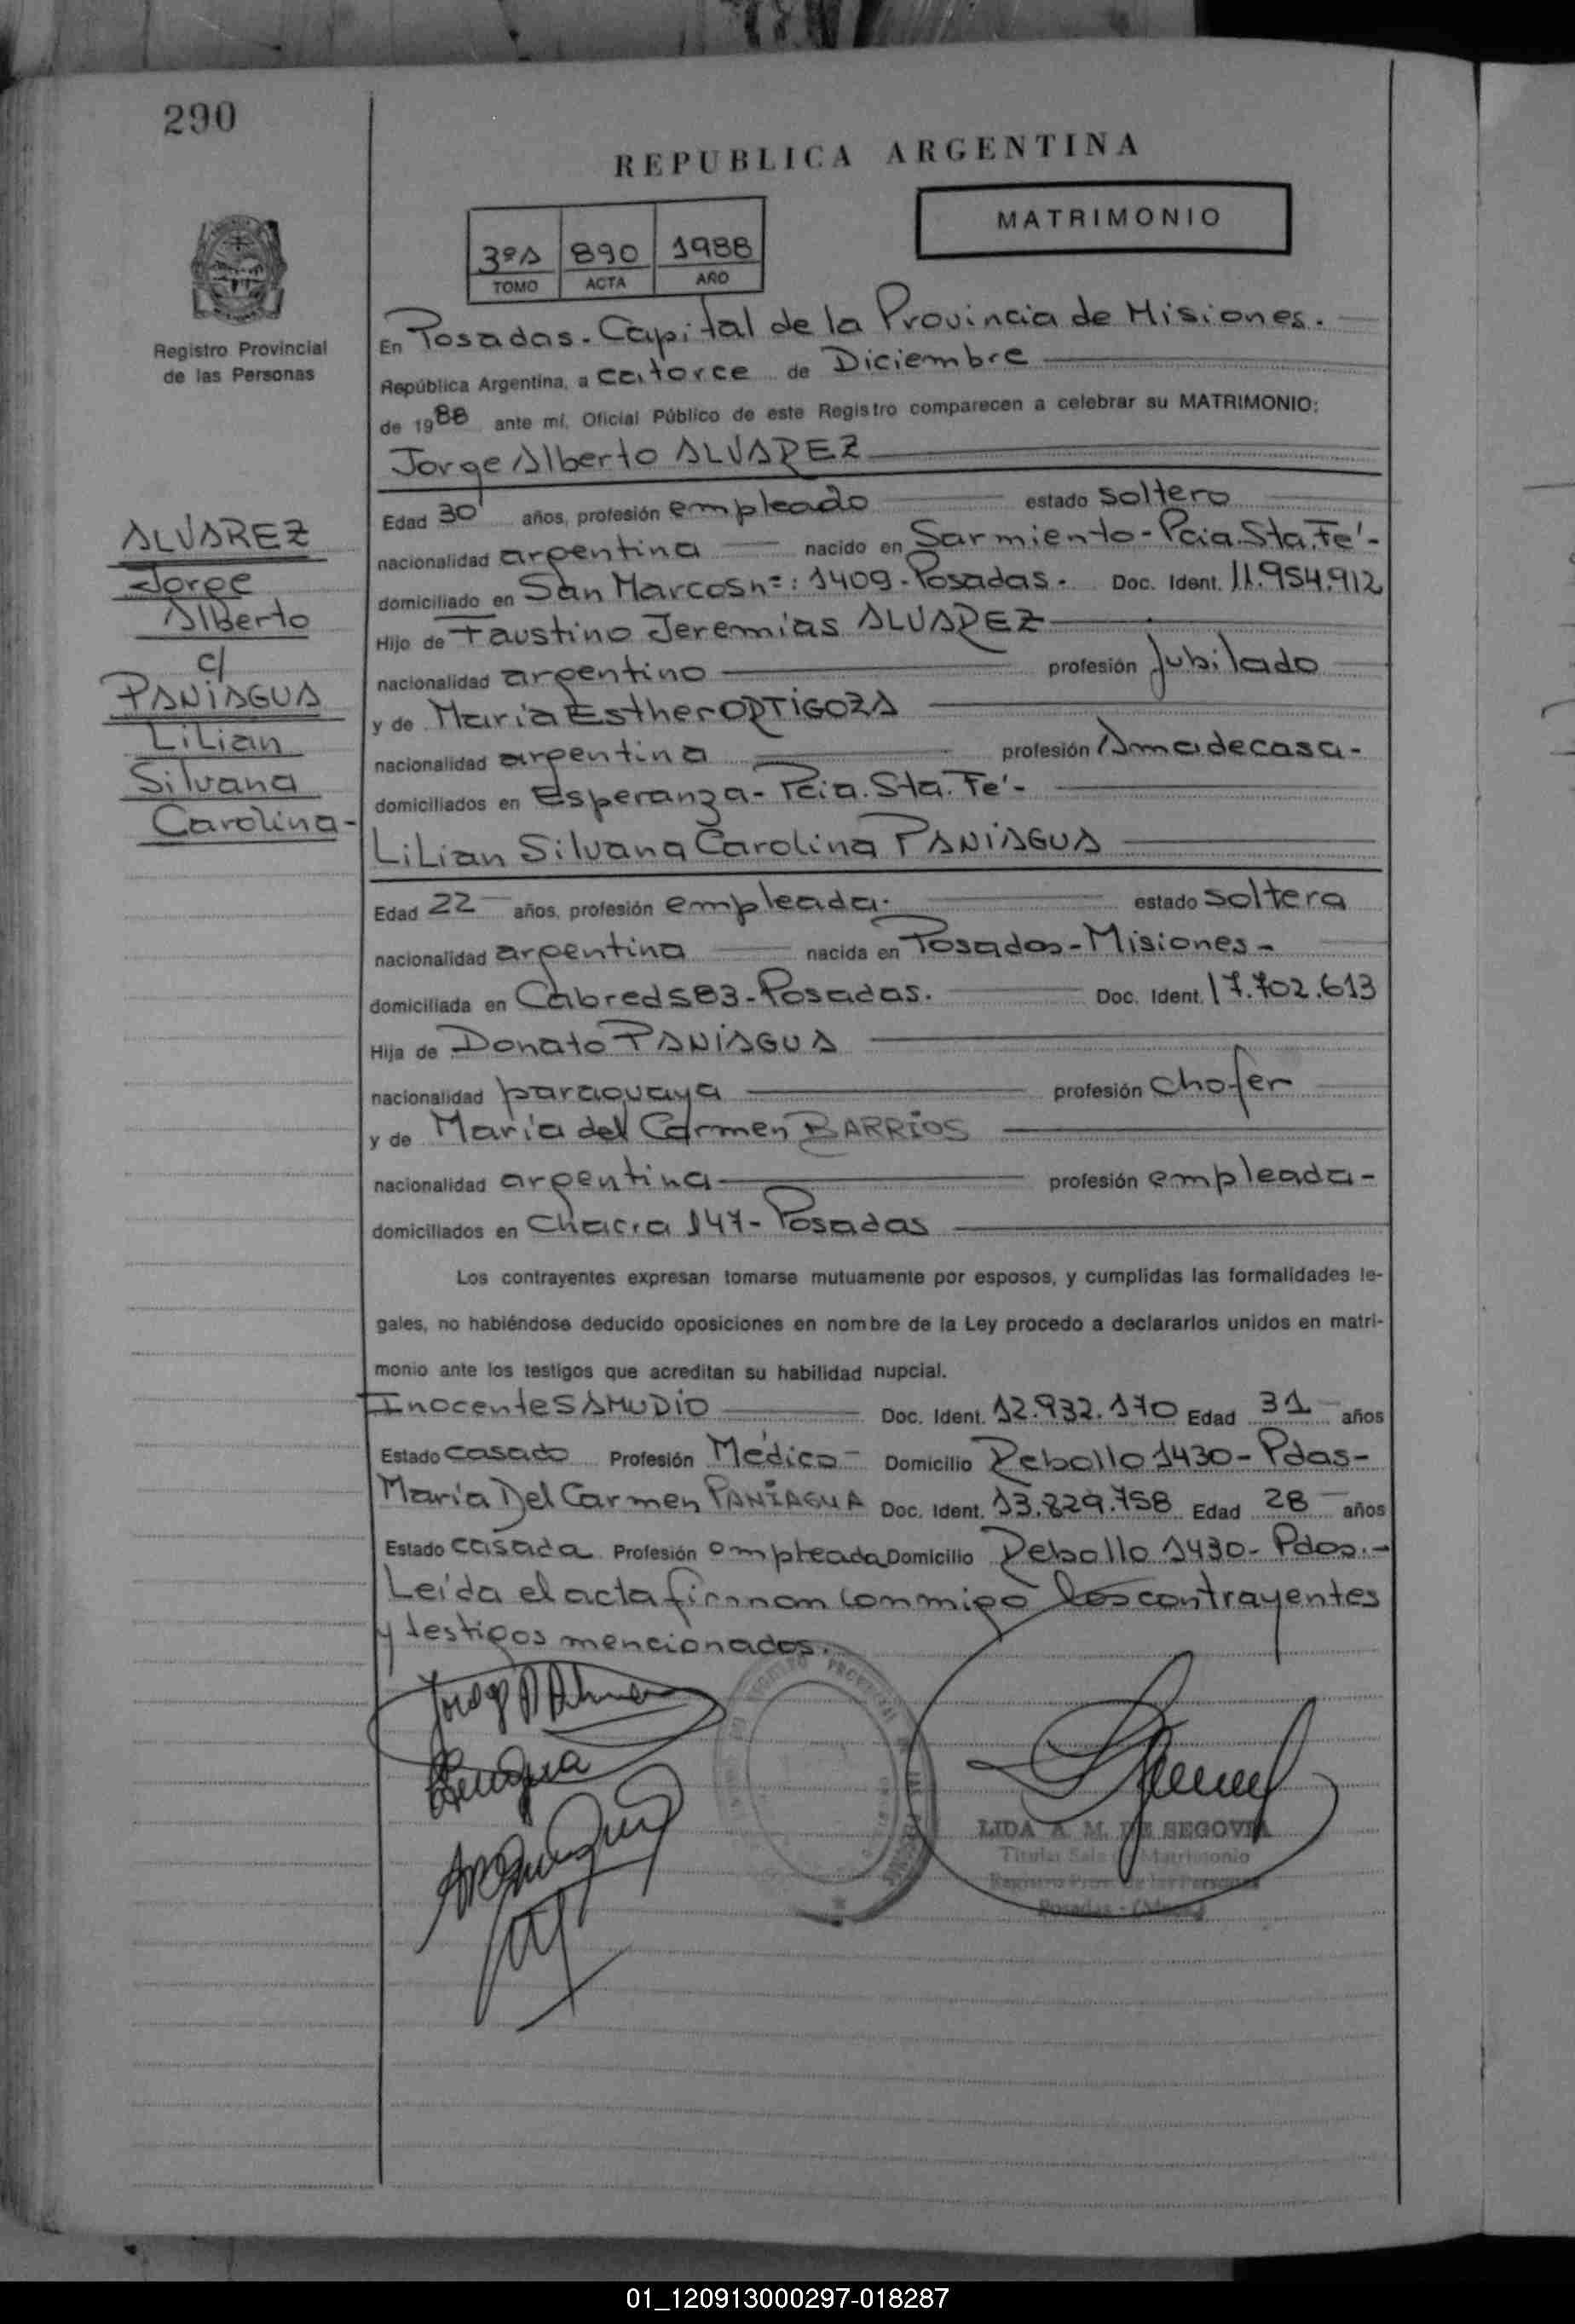 290
REPUBLICA ARGENTINA
MATRIMONIO
3ºA 890 1988
TOMO ACTA AÑO
Registro Provincial
de las Personas
En Posadas. Capital de la Provincia de Misiones.
República Argentina, a catorce de Diciembre
de 1988 ante mí, Oficial Público de este Registro comparecen a celebrar su MATRIMONIO:
Jorge Alberto ALVAREZ
ALVAREZ
Jorge
Alberto
c/
PANIAGUA
Lilian
Silvana
Carolina-
Edad 30 años, profesión empleado estado soltero
nacionalidad argentina nacido en Sarmiento-Pcia.Sta.Fe'-
domiciliado en San Marcos nº: 1409-Posadas. Doc. Ident. 11.954.912
Hijo de Faustino Jeremías ALVAREZ
nacionalidad argentino profesión Jubilado
y de María Esther ORTIGOZA
nacionalidad argentina profesión Ama de casa-
domiciliados en Esperanza-Pcia.Sta.Fe'-
Lilian Silvana Carolina PANIAGUA
Edad 22 años, profesión empleada. estado soltera
nacionalidad argentina nacida en Posadas-Misiones-
domiciliada en Cabred 583-Posadas. Doc. Ident. 17.702.613
Hija de Donato PANIAGUA
nacionalidad paraguaya profesión chofer
y de María del Carmen BARRIOS
nacionalidad argentina profesión empleada-
domiciliados en Chacra 147-Posadas
Los contrayentes expresan tomarse mutuamente por esposos, y cumplidas las formalidades le-
gales, no habiéndose deducido oposiciones en nombre de la Ley procedo a declararlos unidos en matri-
monio ante los testigos que acreditan su habilidad nupcial.
Inocente SAMUDIO Doc. Ident. 12.932.170 Edad 31 años
Estado casado Profesión Médico- Domicilio Rebollo 1430-Pdas-
María Del Carmen PANIAGUA Doc. Ident. 13.829.758 Edad 28 años
Estado casada Profesión empleada Domicilio Rebollo 1430-Pdas.-
Leída el acta firman conmigo los contrayentes
y testigos mencionados.
LIDA A. M. DE SEGOVIA
Titular Sala de Matrimonio
Registro Prov. de las Personas
Posadas - (Mnes.)
01_120913000297-018287